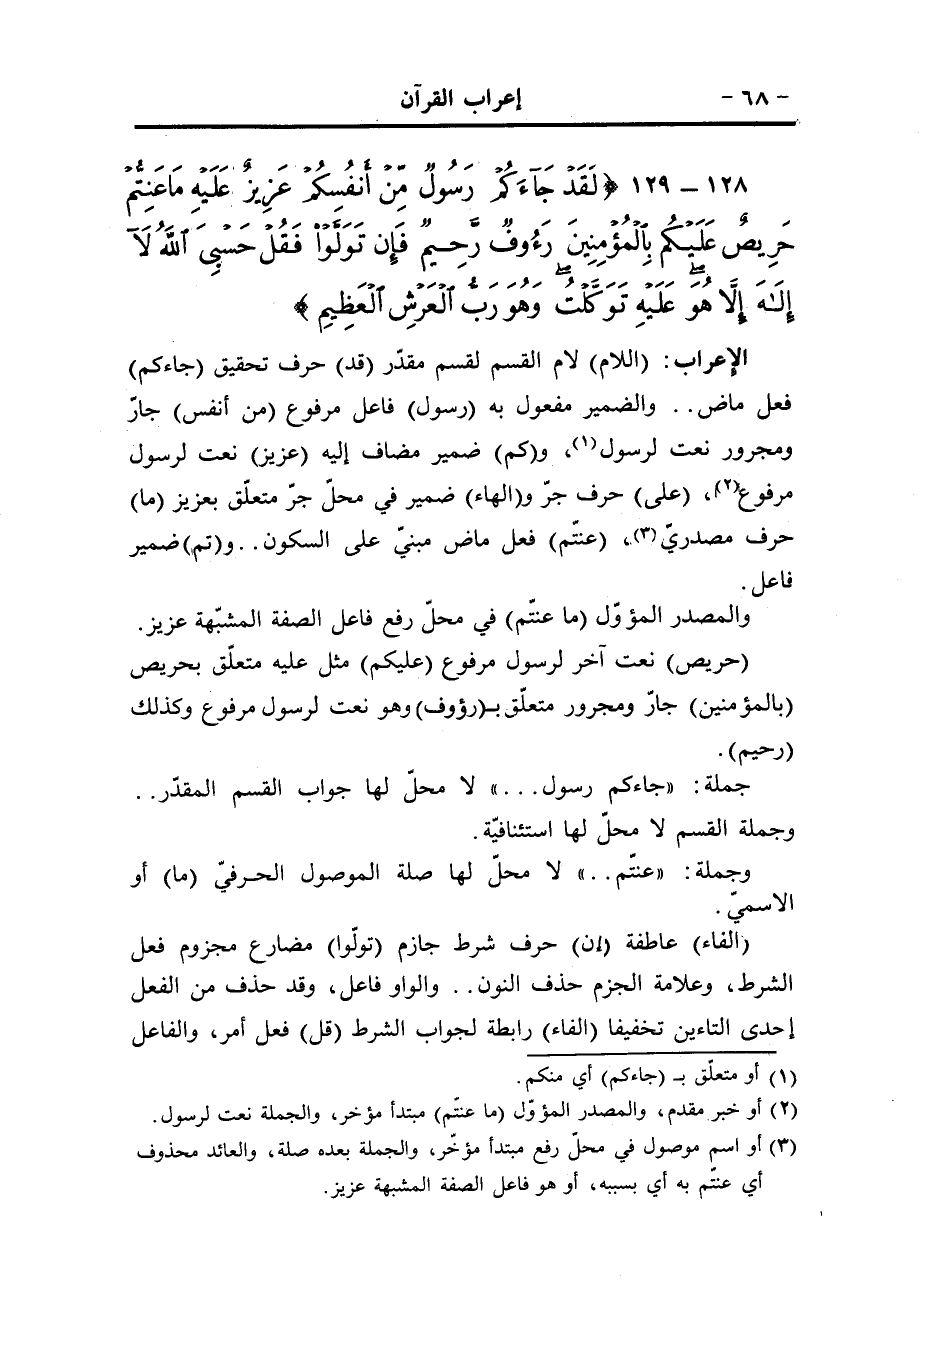 - ٦٨ - إعراب القرآن
١٢٨ - ١٢٩ ﴿ لَقَدْ جَآءَكُمْ رَسُولٌ مِّنْ أَنفُسِكُمْ عَزِيزٌ عَلَيْهِ مَا عَنِتُّمْ
حَرِيصٌ عَلَيْكُم بِالْمُؤْمِنِينَ رَءُوفٌ رَّحِيمٌ فَإِن تَوَلَّوْا فَقُلْ حَسْبِيَ ٱللَّهُ لَآ
إِلَـٰهَ إِلَّا هُوَ ۖ عَلَيْهِ تَوَكَّلْتُ ۖ وَهُوَ رَبُّ ٱلْعَرْشِ ٱلْعَظِيمِ ﴾
الإعراب: (اللام) لام القسم لقسم مقدّر (قد) حرف تحقيق (جاءكم)
فعل ماض.. والضمير مفعول به (رسول) فاعل مرفوع (من أنفس) جارّ
ومجرور نعت لرسول(١)، و(كم) ضمير مضاف إليه (عزيز) نعت لرسول
مرفوع(٢)، (على) حرف جرّ و(الهاء) ضمير في محلّ جرّ متعلّق بعزيز (ما)
حرف مصدريّ(٣)، (عنتّم) فعل ماض مبنيّ على السكون.. و(تم) ضمير
فاعل.
والمصدر المؤوّل (ما عنتّم) في محلّ رفع فاعل الصفة المشبّهة عزيز.
(حريص) نعت آخر لرسول مرفوع (عليكم) مثل عليه متعلّق بحريص
(بالمؤمنين) جارّ ومجرور متعلّق بـ(رؤوف) وهو نعت لرسول مرفوع وكذلك
(رحيم).
جملة: «جاءكم رسول...» لا محلّ لها جواب القسم المقدّر..
وجملة القسم لا محلّ لها استئنافيّة.
وجملة: «عنتّم..» لا محلّ لها صلة الموصول الحرفيّ (ما) أو
الاسميّ.
(الفاء) عاطفة (إن) حرف شرط جازم (تولّوا) مضارع مجزوم فعل
الشرط، وعلامة الجزم حذف النون.. والواو فاعل، وقد حذف من الفعل
إحدى التاءين تخفيفا (الفاء) رابطة لجواب الشرط (قل) فعل أمر، والفاعل
(١) أو متعلّق بـ (جاءكم) أي منكم.
(٢) أو خبر مقدم، والمصدر المؤوّل (ما عنتّم) مبتدأ مؤخر، والجملة نعت لرسول.
(٣) أو اسم موصول في محلّ رفع مبتدأ مؤخّر، والجملة بعده صلة، والعائد محذوف
أي عنتّم به أي بسببه، أو هو فاعل الصفة المشبهة عزيز.